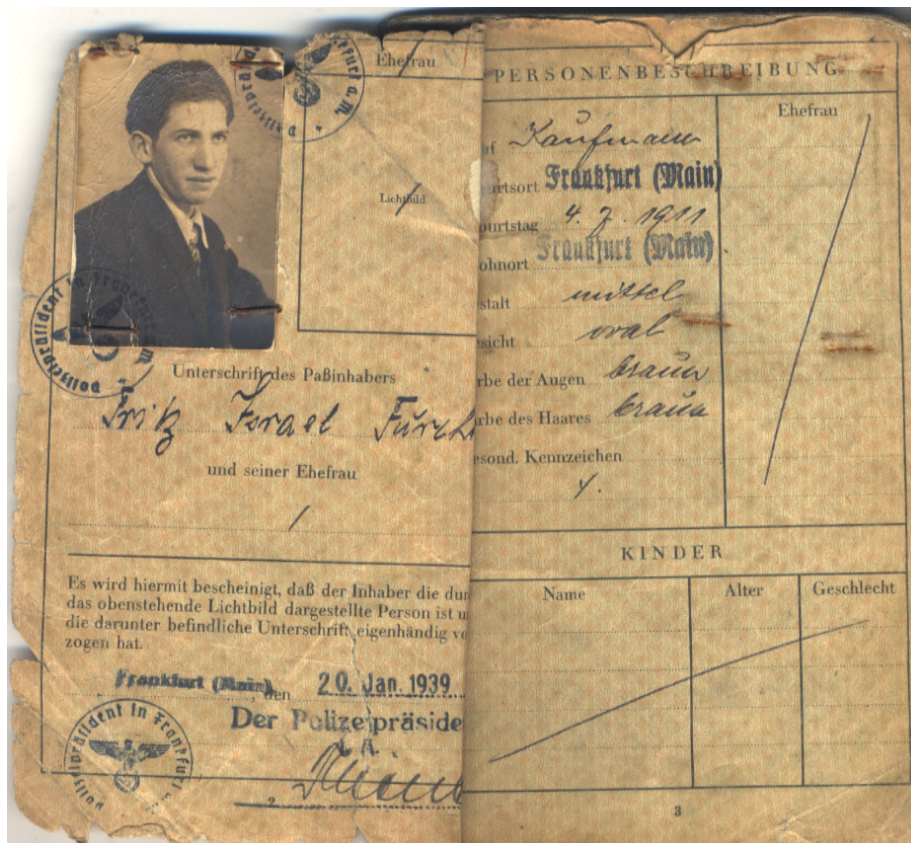 Ehefrau
Lichtbild
Polizeipräsident in Frankfurt a. M.
Unterschrift des Paßinhabers
Fritz Israel Fürch
und seiner Ehefrau
/
Es wird hiermit bescheinigt, daß der Inhaber die dur
das obenstehende Lichtbild dargestellte Person ist u
die darunter befindliche Unterschrift eigenhändig vo
zogen hat.
Frankfurt (Main), den 20. Jan. 1939
Der Polizeipräside
Polizeipräsident in Frankfurt
2
PERSONENBESCHREIBUNG
Ehefrau
uf Kaufmann
urtsort Frankfurt (Main)
burtstag 4. 7. 1911
ohnort Frankfurt (Main)
stalt mittel
sicht oval
rbe der Augen braun
rbe des Haares braun
esond. Kennzeichen
KINDER
Name Alter Geschlecht
3